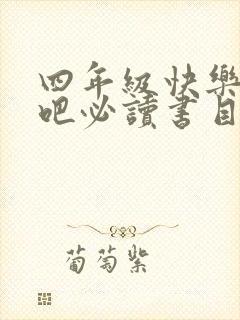 四年級快樂
吧必讀書目
葡萄紫